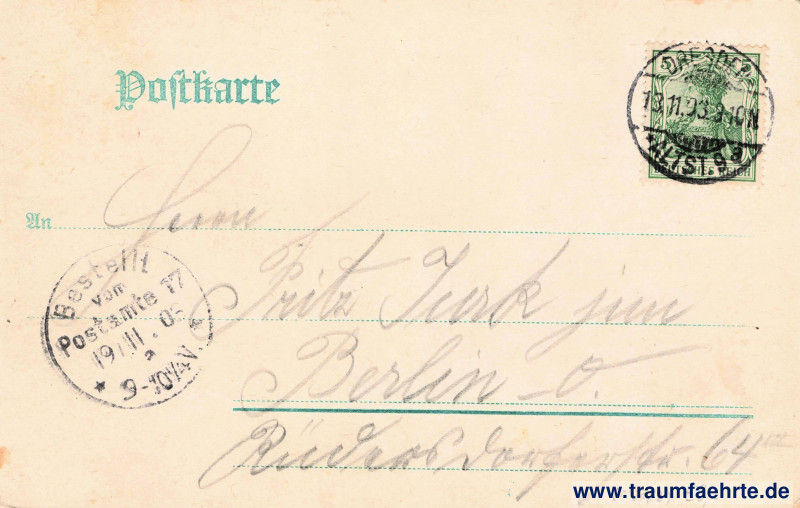 Postkarte
DRESDEN
ALTST. 9 a
DEUTSCHES REICH
An
Herrn
Fritz Turk jun
Berlin - O.
Rüdersdorferstr. 64
Bestellt
vom
Postamte 17
19/11. 03
9-10¼V
www.traumfaehrte.de